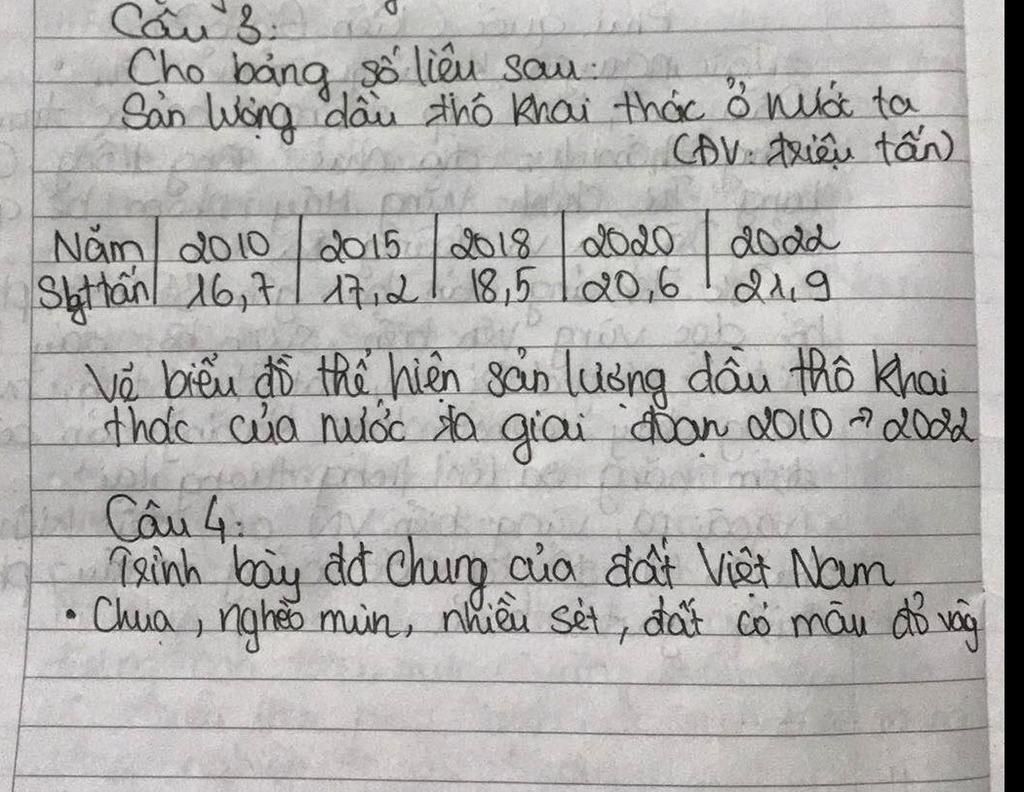 Câu 3:
Cho bảng số liệu sau:
Sản lượng dầu thô khai thác ở nước ta
(ĐV: triệu tấn)
Năm | 2010 | 2015 | 2018 | 2020 | 2022
tấn | 16,7 | 17,2 | 18,5 | 20,6 | 21,9
Vẽ biểu đồ thể hiện sản lượng dầu thô khai
thác của nước ta giai đoạn 2010 → 2022
Câu 4:
Trình bày đđ chung của đất Việt Nam
• Chua, nghèo mùn, nhiều sét, đất có màu đỏ vàg